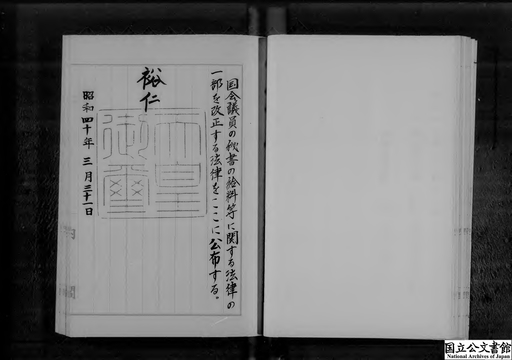 国会議員の秘書の給料等に関する法律の
一部を改正する法律をここに公布する。
裕仁
天皇
御璽
昭和四十年三月三十一日
国立公文書館
National Archives of Japan